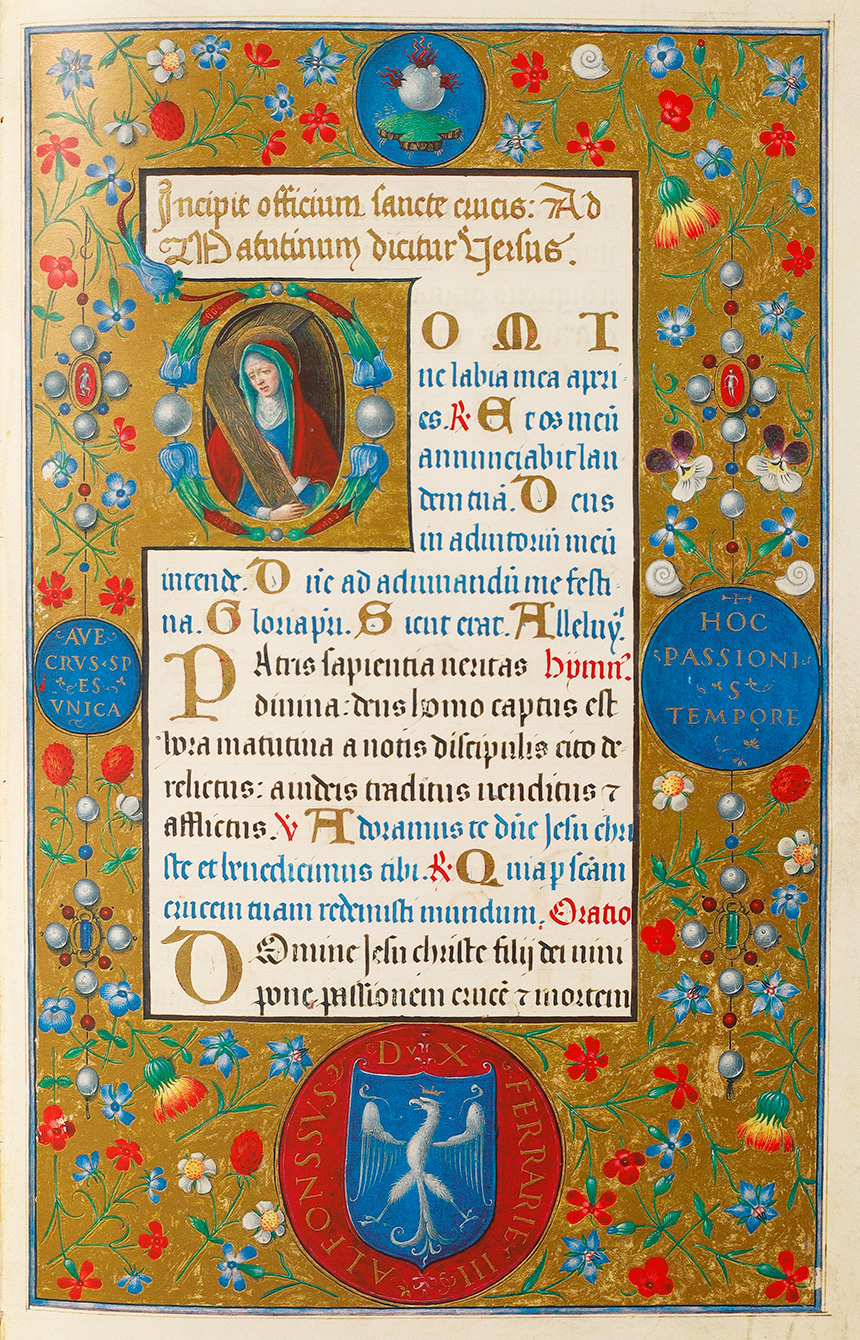 Incipit officium sancte crucis: Ad
Matutinum dicitur Versus.
DOMI
ne labia mea apri
es. R Et os meũ
annunciabit lau
dem tuã. Deus
in adiutoriũ meũ
intende. Dñe ad adiuuandũ me festi
na. Gloria p̃ri. Sicut erat. Alleluy̾.
PAtris sapientia ueritas hymn̾.
diuina: deus homo captus est
hora matutina a notis discipulis cito de
relictus: a iudeis traditus uenditus ⁊
afflictus. V Adoramus te dñe Jesu chri
ste et benedicimus tibi. R Quia p scãm
crucem tuam redemisti mundum. Oratio
DOmine Jesu christe filij dei uiui
pone passionem crucẽ ⁊ mortem
AVE
CRVS SP
ES
VNICA
HOC
PASSIONI
S
TEMPORE
ALFONSSVS DVX FERRARIE III